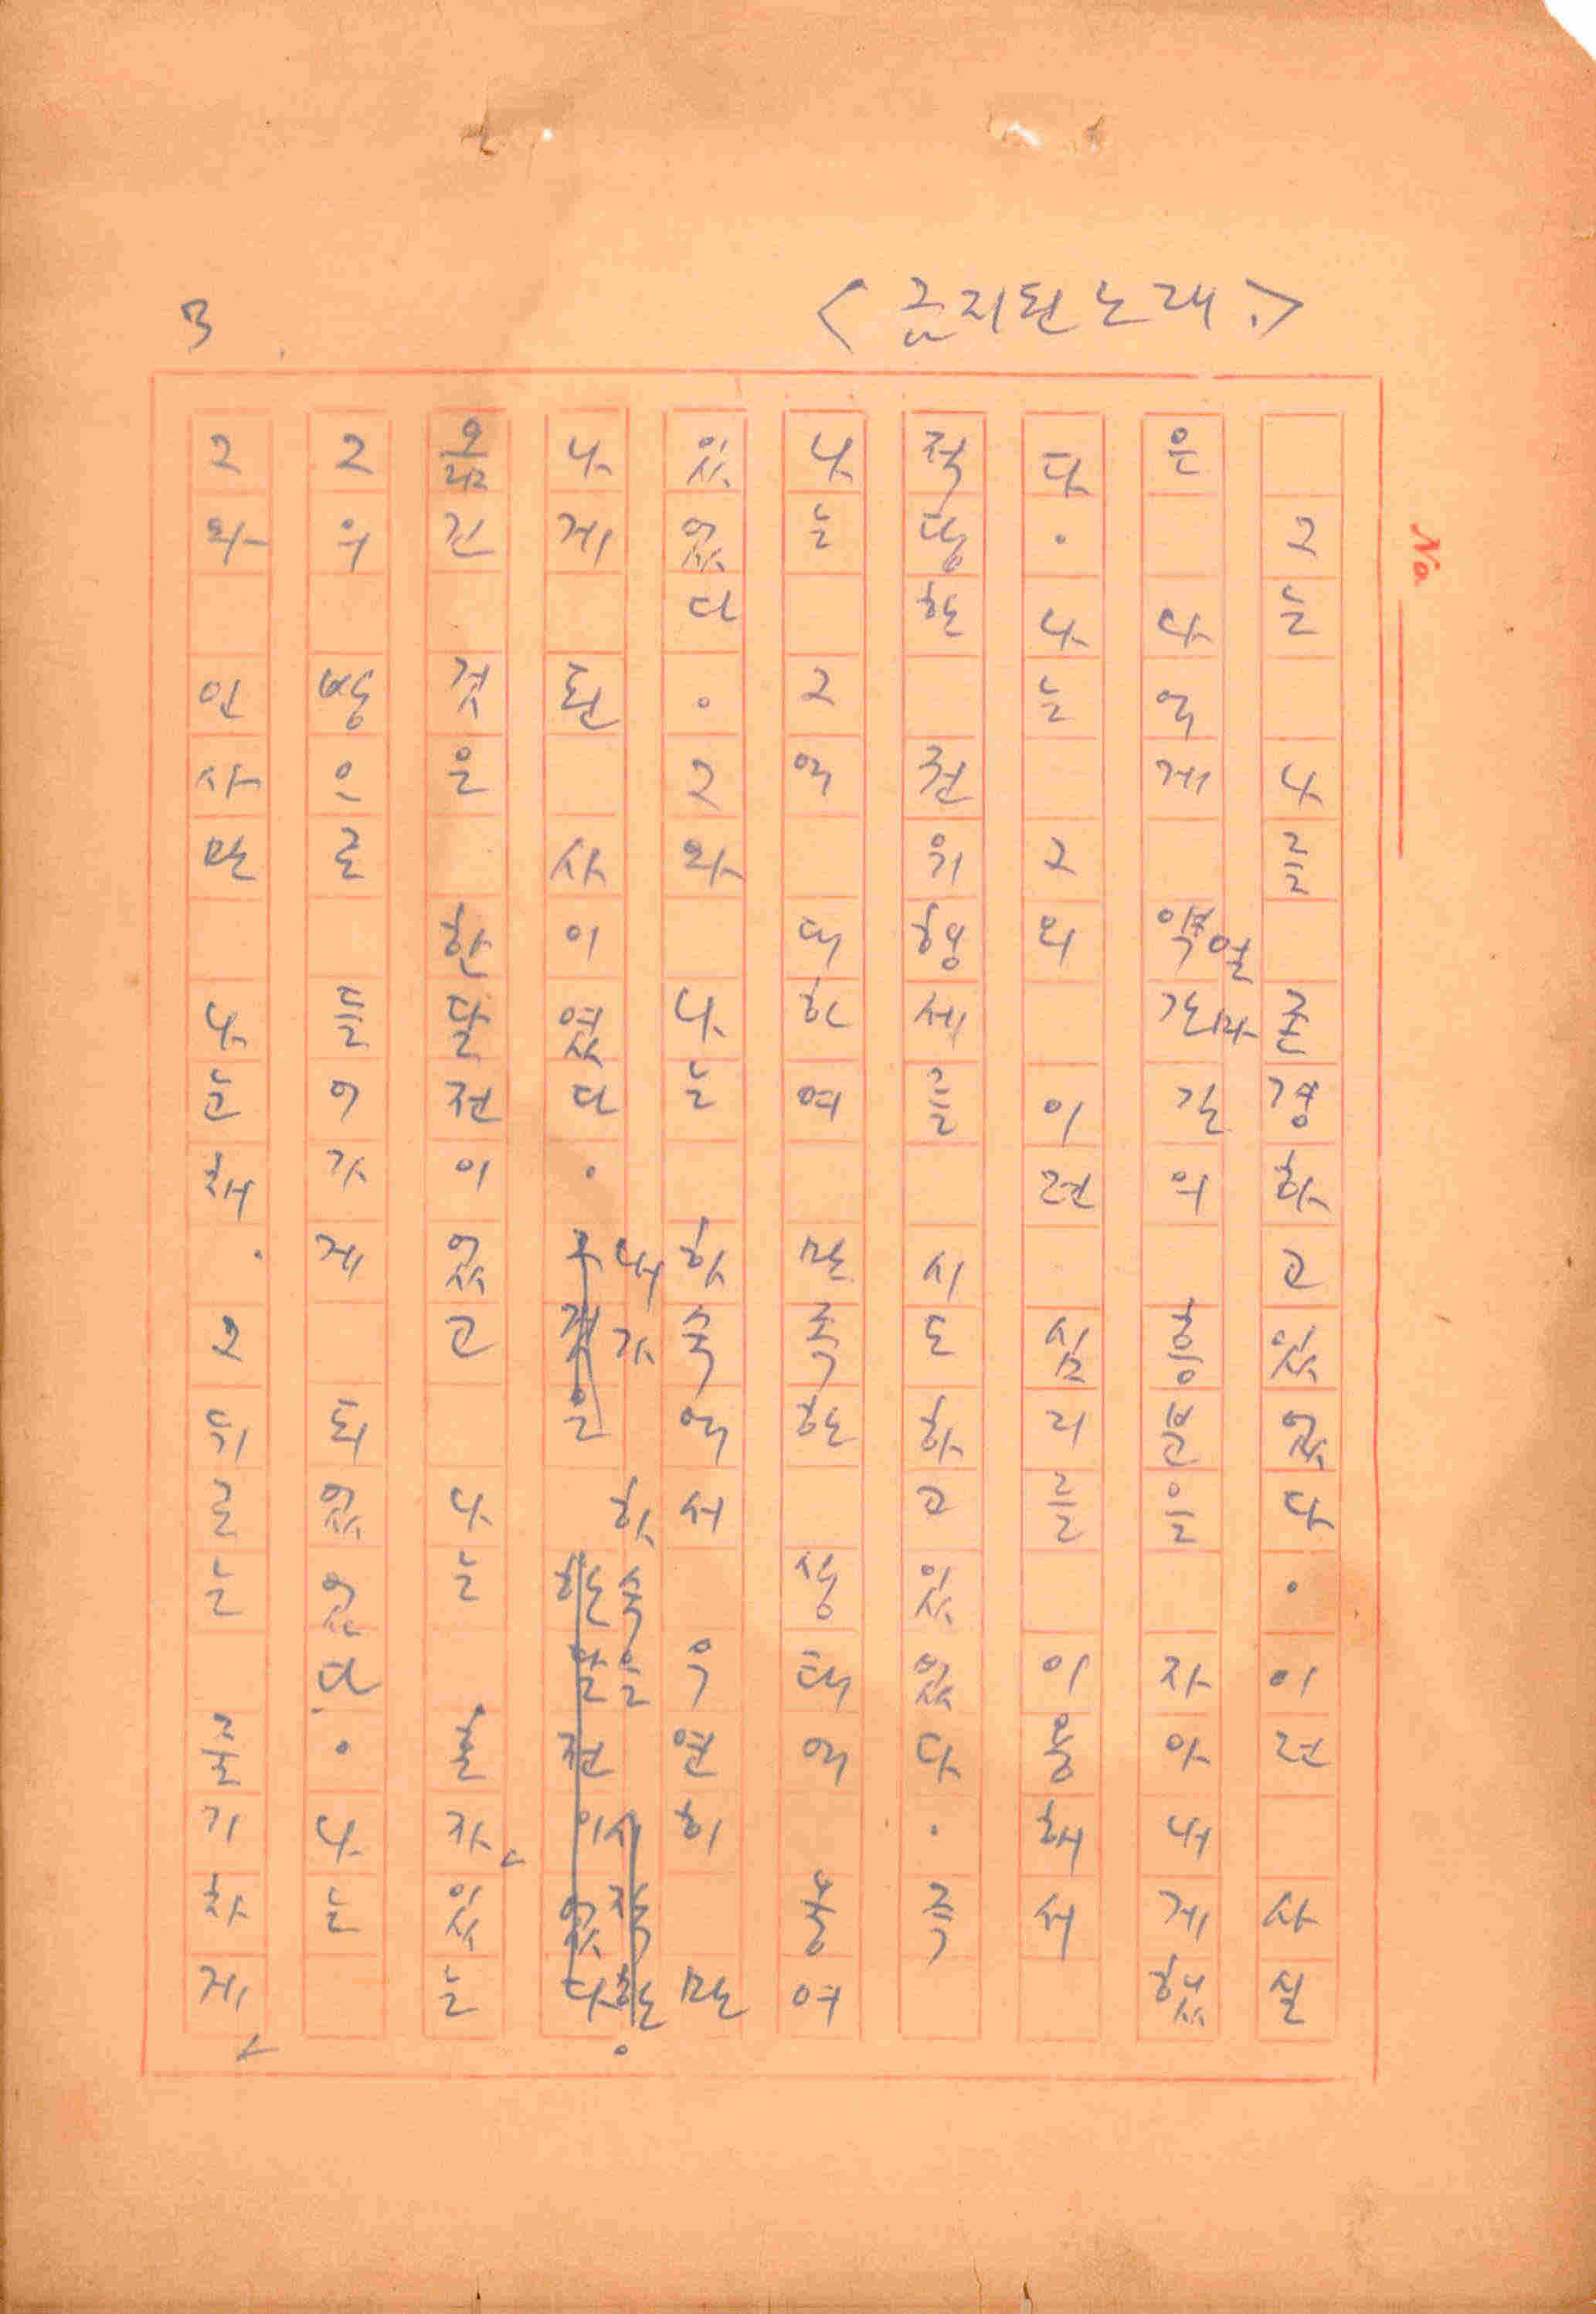 <금지된 노래.>
3
No
그는 나를 존경하고 있었다. 이런 사실
은 나에게 약간 간의 흥분을 자아내게 했
얼마
다. 나는 그의 이런 심리를 이용해서
적당한 권위행세를 시도하고 있었다. 즉
나는 그에 대하여 만족한 상태에 놓여
있었다. 그와 나는 하숙에서 우연히 만
내가 하숙을 시작한
나게 된 사이였다. 그것은 한달전이었다.
옮긴 것은 한달전이었고 나는 혼자 있는
그의 방으로 들어가게 되었었다. 나는
그와 인사만 나눈채. 그뒤로는 줄기차게